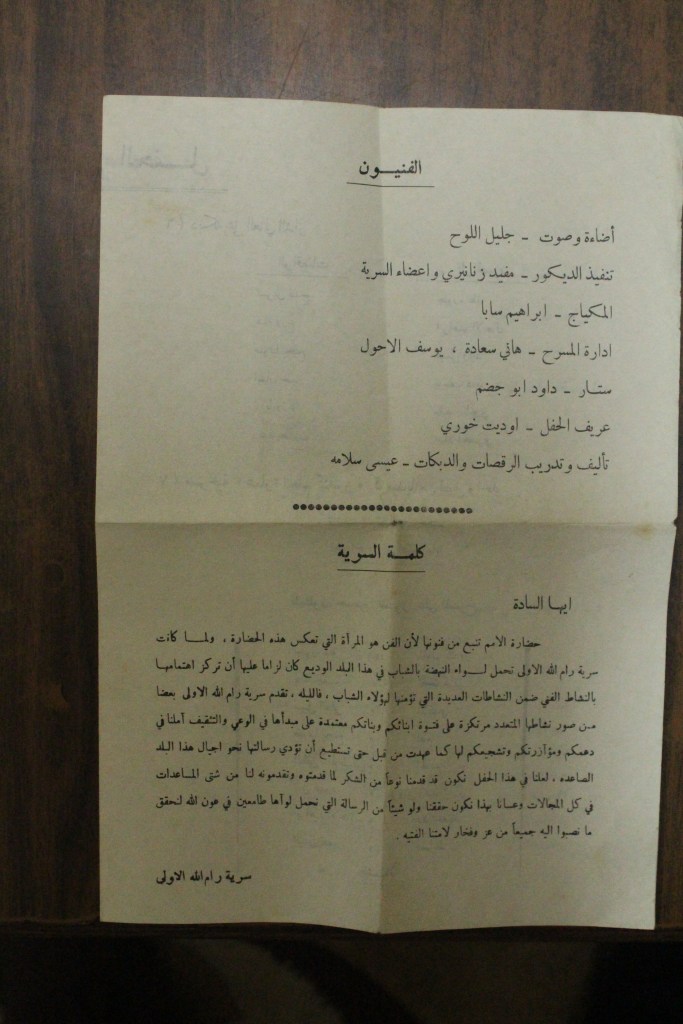 الفنيــون
أضاءة وصوت - جليل اللوح
تنفيذ الديكور - مفيد زنانيري واعضاء السرية
المكياج - ابراهيم سابا
ادارة المسرح - هاني سعادة ، يوسف الاحول
ستــار - داود ابو جضم
عريف الحفل - اوديت خوري
تأليف وتدريب الرقصات والدبكات - عيسى سلامه
كلمــة السرية
ايها السادة
حضارة الامم تنبع من فنونها لأن الفن هو المرأة التي تعكس هذه الحضارة ، ولمــا كانت
سرية رام الله الاولى تحمل لــواء النهضة بالشباب في هذا البلد الوديع كان لزاما عليها أن تركز اهتمامهــا
بالنشاط الفني ضمن النشاطات العديدة التي تؤمنها لهؤلاء الشباب ، فالليله ، تقدم سرية رام الله الاولى بعضا
مــن صور نشاطها المتعدد مرتكزة على فتــوة ابنائكم وبناتكم معتمدة على مبدأها في الوعي والتثقيف آملنا في
دهمكم ومؤآزرتكم وتشجيعكم لها كما عهدت من قبل حتى تستطيع أن تؤدي رسالتها نحو اجيال هذا البلد
الصاعده ، لعلنا في هذا الحفل نكون قد قدمنا نوعاً من الشكر لما قدمتوه وتقدمونه لنا من شتى المساعدات
في كل المجالات وعسانا بهذا نكون حققنا ولو شيئاً من الرسالة التي نحمل لوآها طامعين في عون الله لنحقق
ما نصبوا اليه جميعاً من عز وفخار لامتنا الفتيه .
سرية رام الله الاولى